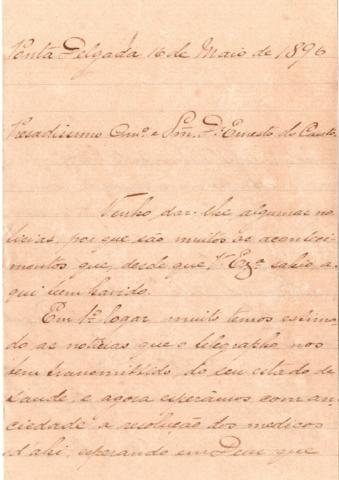 Ponta Delgada 16 de Maio de 1896
Presadissimo Amº. e Snr. Dr. Ernesto do Canto
Venho dar-lhe algumas no
ticias, por que são muitos os aconteci
mentos que, desde que Vª Exª sahio a-
qui tem havido.
Em 1º logar muito temos estima
do as noticias que o telegrapho nos
tem transmittido, do seu estado de
saude, e agora esperâmos com an-
ciedade a resolução dos medicos
d'ahi, esperando em Deus que